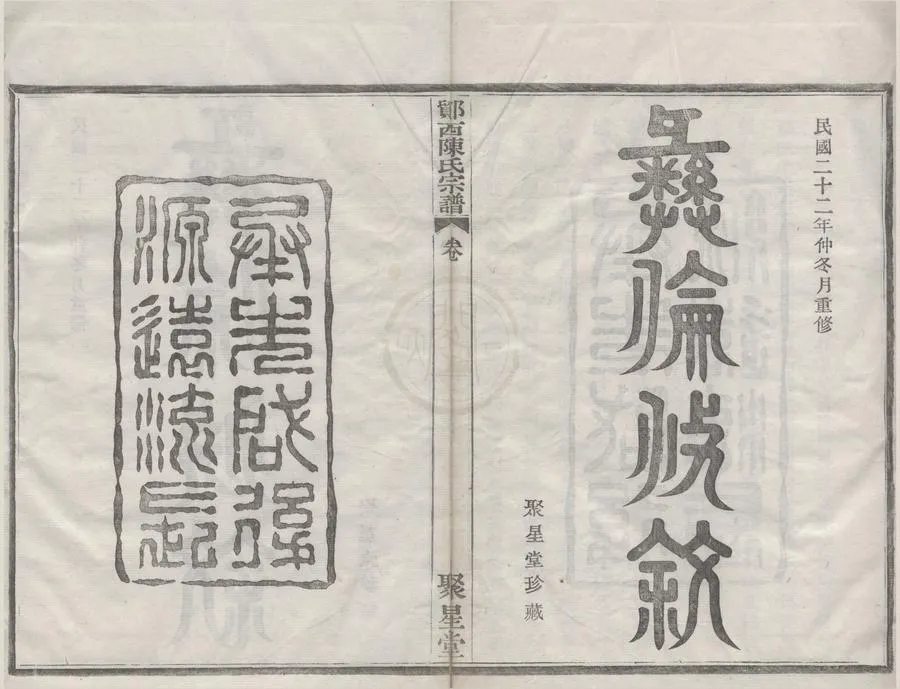 民國二十二年仲冬月重修
彝倫攸敘
聚星堂珍藏
鄖西陳氏宗譜
卷
聚星堂
承先啟後
源遠流長